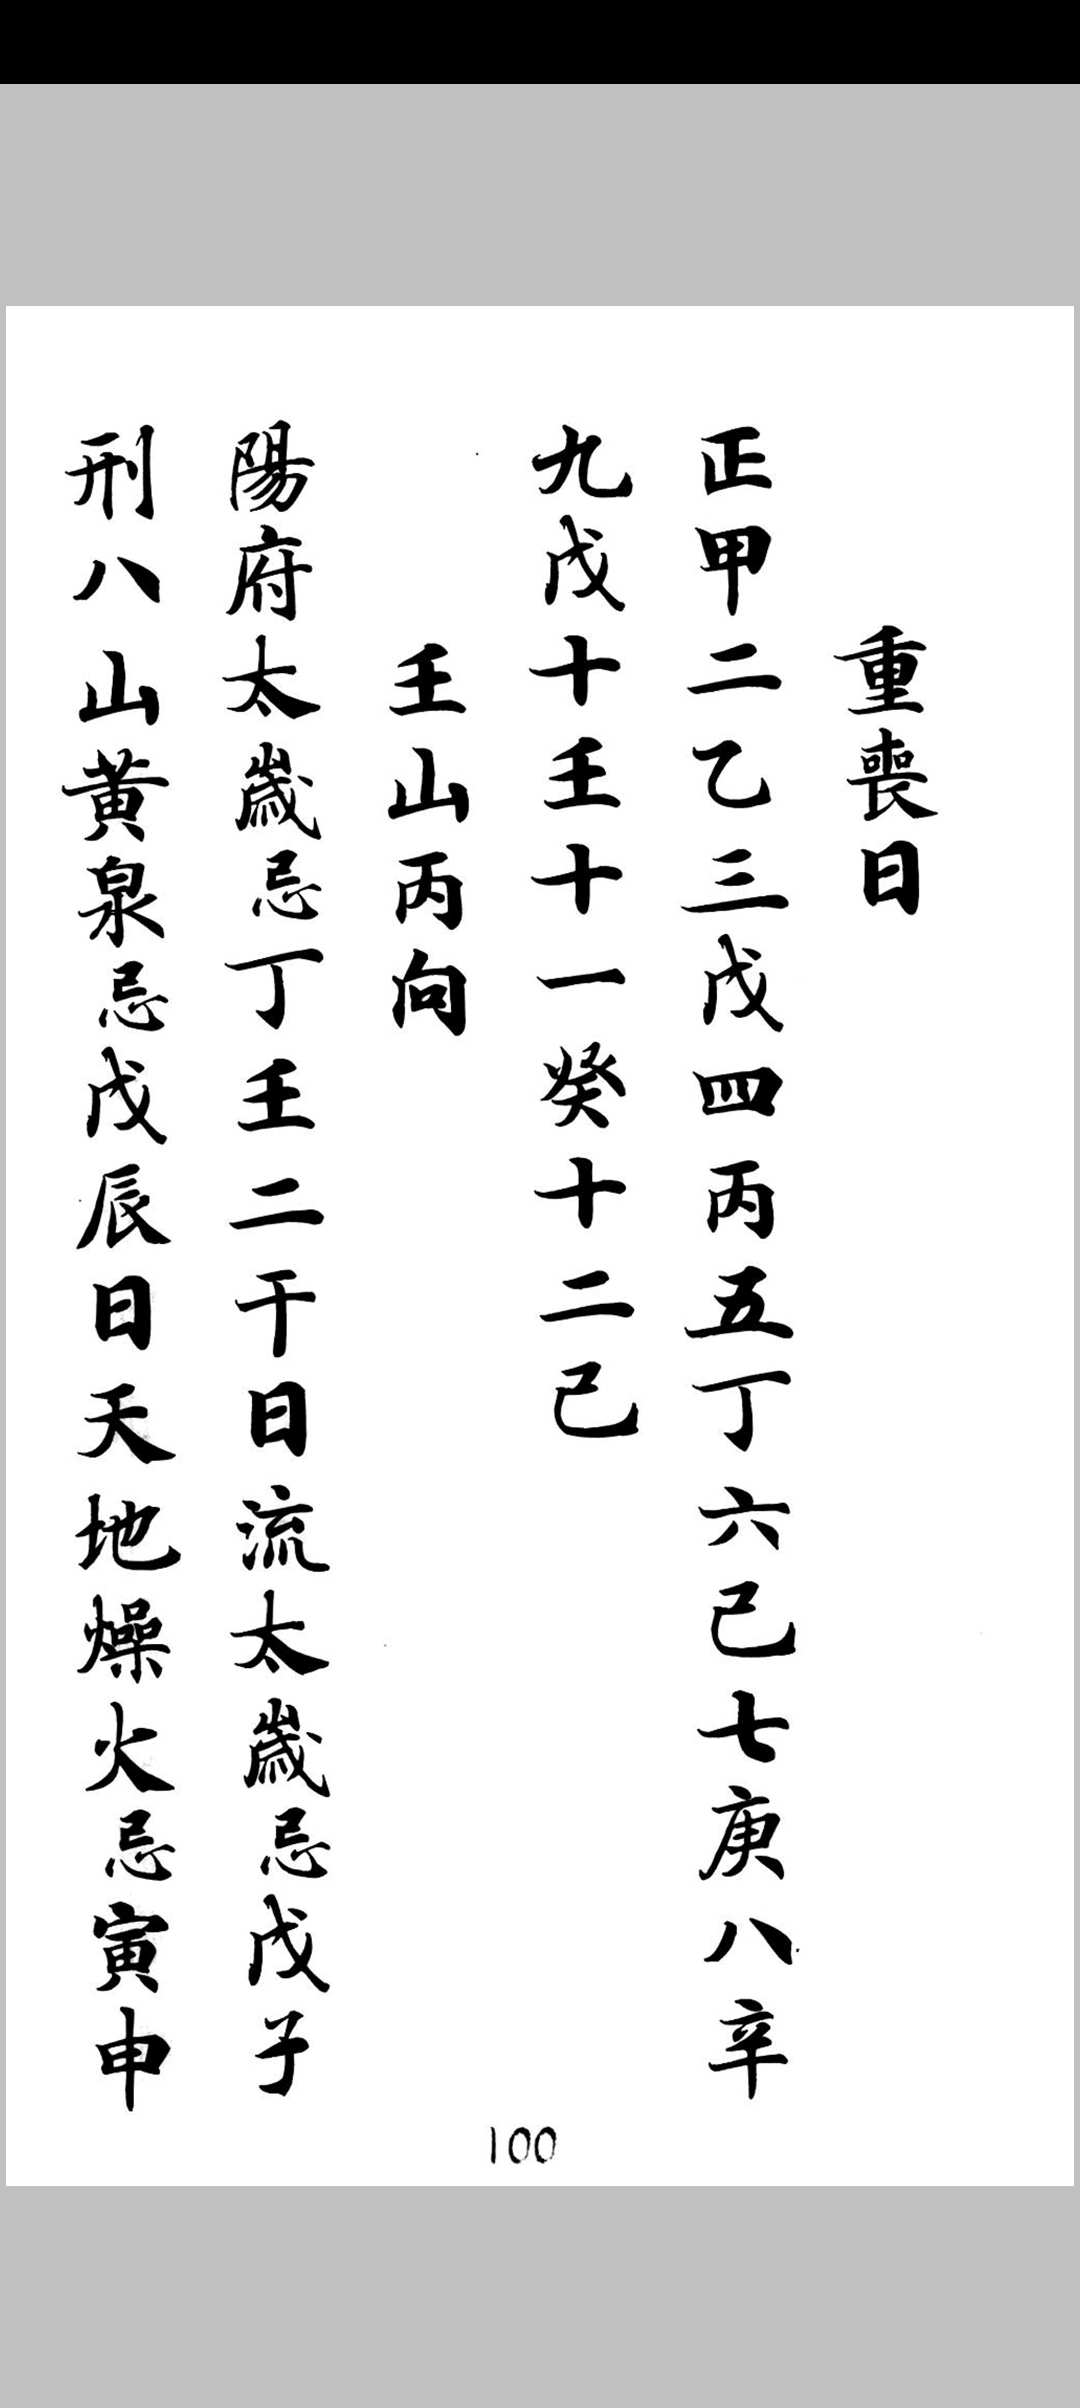 重喪日
正甲二乙三戊四丙五丁六己七庚八辛
九戊十壬十一癸十二己
壬山丙向
陽府太歲忌丁壬二干日流太歲忌戊子
刑八山黃泉忌戊辰日天地燥火忌寅申
100